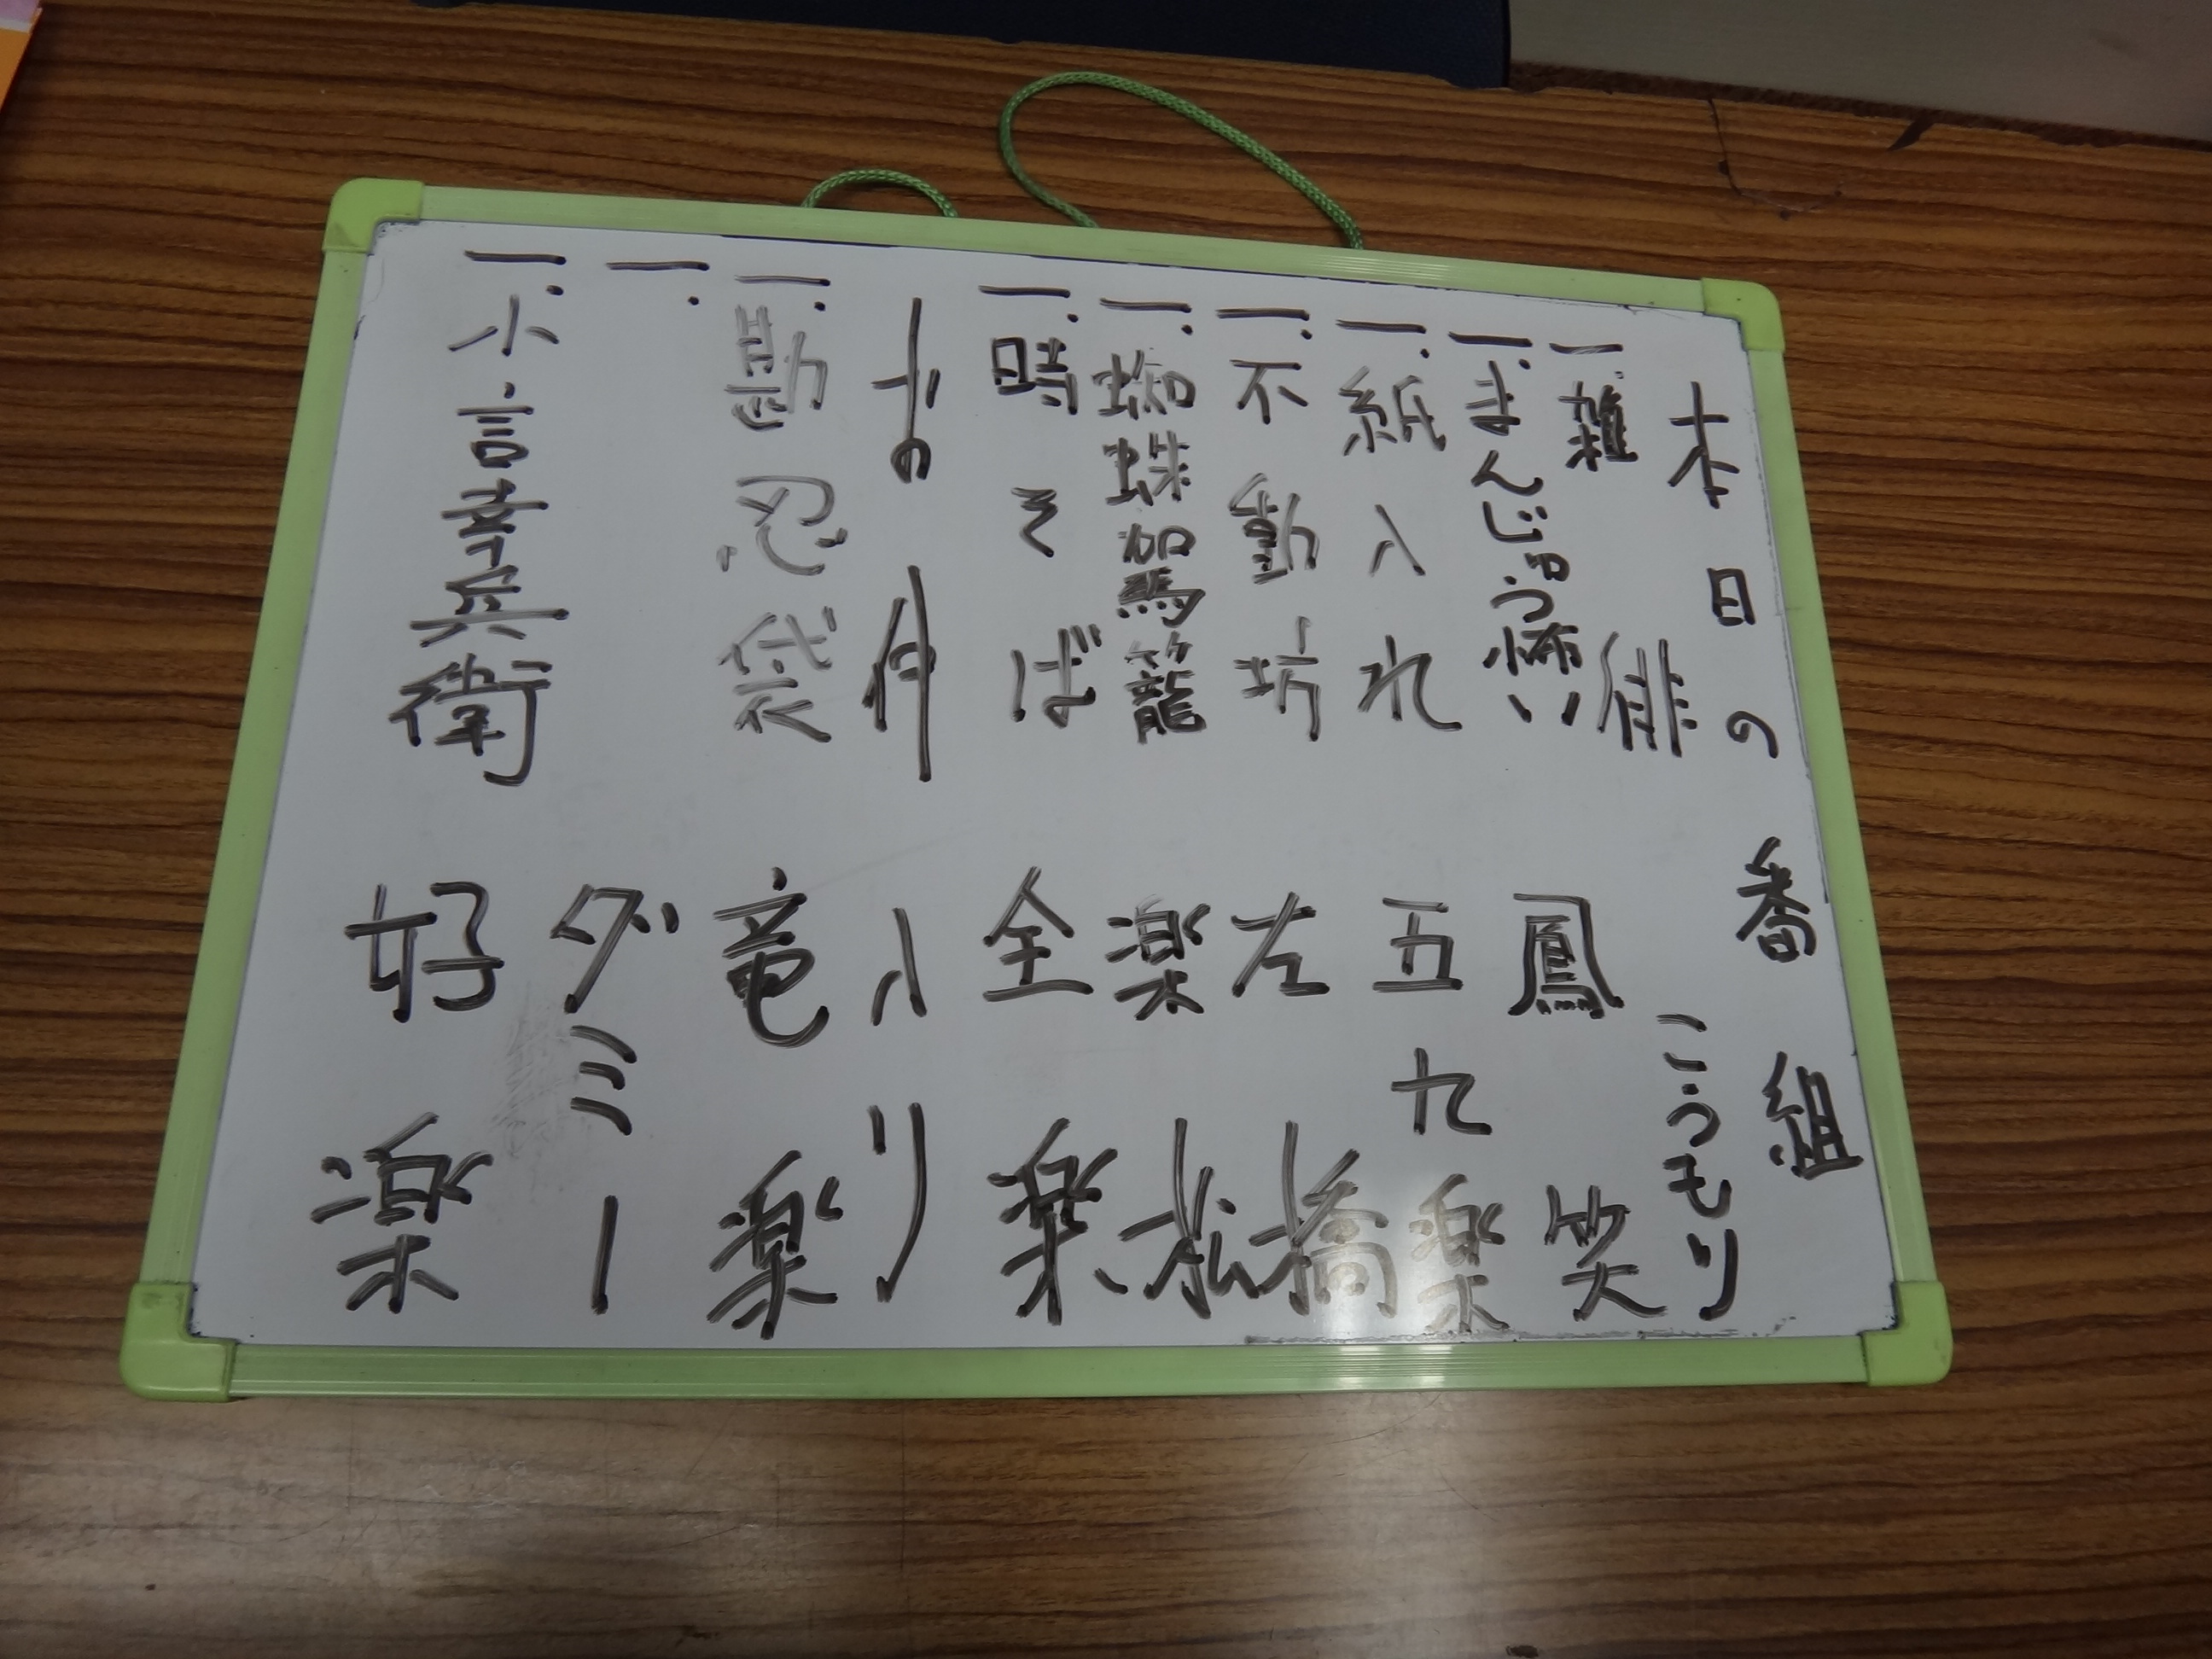 本日の番組
一、雑俳 こうもり
一、まんじゅう怖い 鳳笑
一、紙入れ 五九楽
一、不動坊 左橋
一、蜘蛛駕籠 楽松
一、時そば 全楽
お仲入り
一、勘忍袋 竜楽
一、 ダミー
一、小言幸兵衛 好楽